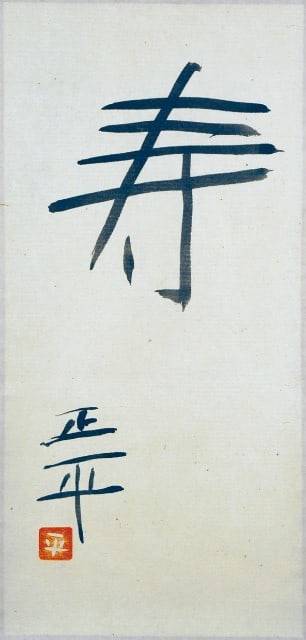 寿
正平
平